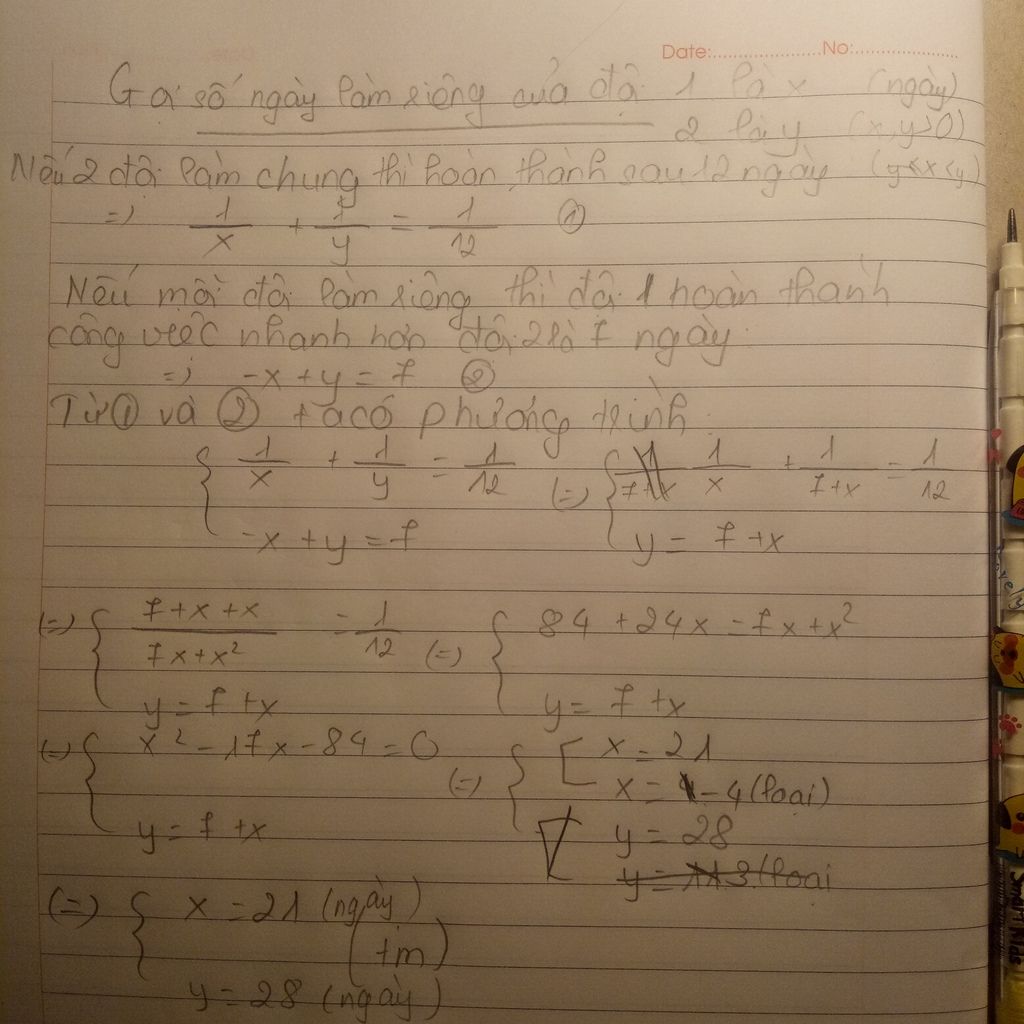 Date:....................No:....................
Gọi số ngày làm riêng của đội 1 là x (ngày)
2 là y (x,y>0)
Nếu 2 đội làm chung thì hoàn thành sau 12 ngày (x<y)
=> 1/x + 1/y = 1/12 ①
Nếu mỗi đội làm riêng thì đội 1 hoàn thành
công việc nhanh hơn đội 2 là 7 ngày
=> -x + y = 7 ②
Từ ① và ② ta có phương trình
{ 1/x + 1/y = 1/12 (=) { 1/x + 1/7+x = 1/12
-x + y = 7 y = 7 + x
(=) { 7+x+x/7x+x² = 1/12 (=) { 84 + 24x = 7x + x²
y = 7 + x y = 7 + x
(=) { x² - 17x - 84 = 0 (=) { [ x = 21
x = -4 (loại)
y = 7 + x y = 28
y = (loại
(=) { x = 21 (ngày)
(tm)
y = 28 (ngày)
Smart Kids